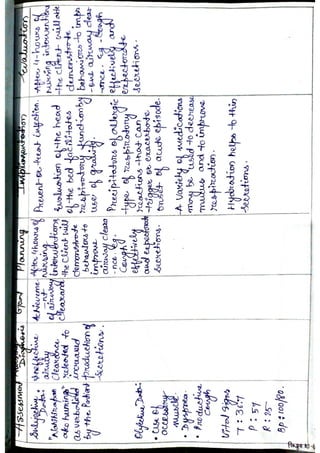 Assessment
Subjective Data:
as verbalized
by the Patient
Objective Data:
• Use of
accessory
muscle.
• Dyspnea.
• Productive
Cough
Vital signs
T: 36.7
P: 57
R: 25
Bp: 100/80.
Diagnosis
Ineffective
airway
Clearance
related to
increased
production of
Secretions.
Goal
of airway
Planning
After 4 hours of
nursing
interventions
the client will
demonstrate
behaviors to
improve
airway clear
-nce eg.
Cough
effectively
and expectorate
secretions.
Implementation
Prevent or treat infection.
Elevation of the head
of the bed facilitates
respiratory function by
use of gravity.
Precipitators of allergic
type of respiratory
reactions that can
trigger or exacerbate
onset of acute episode.
A Variety of medications
may be used to decrease
mucus and to improve
respiration.
Hydration helps to thin
secretions.
Evaluation
After 4-hours of
nursing interventions
the client will able
demonstrate
behaviors to impr
-ove airway clear
-ance. Eg - Cough
effectively and
expectorate
secretions.